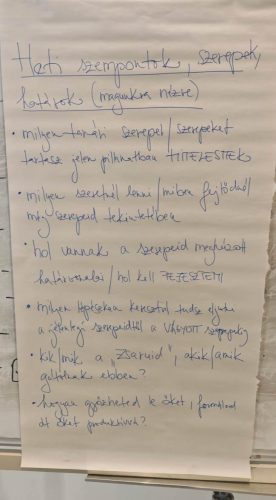 Heti szempontok, szerepek,
határok (magunkra nézve)
• milyen tanári szerepet/szerepeket
tartasz jelen pillanatban HITELESNEK
• milyen szeretnél lenni / miben fejlődnél
még szerepeid tekintetében
• hol vannak a szerepeid meghúzott
határvonalai / hol kell FEJLESZTENI
• milyen lépéseken keresztül tudsz eljutni
a jelenlegi szerepeidtől a VÁGYOTT szerepekig
• kik/mik a "Zsaruid", akik/amik
gátolnak ebben?
• hogyan győzheted le őket,
át őket produktívvá?